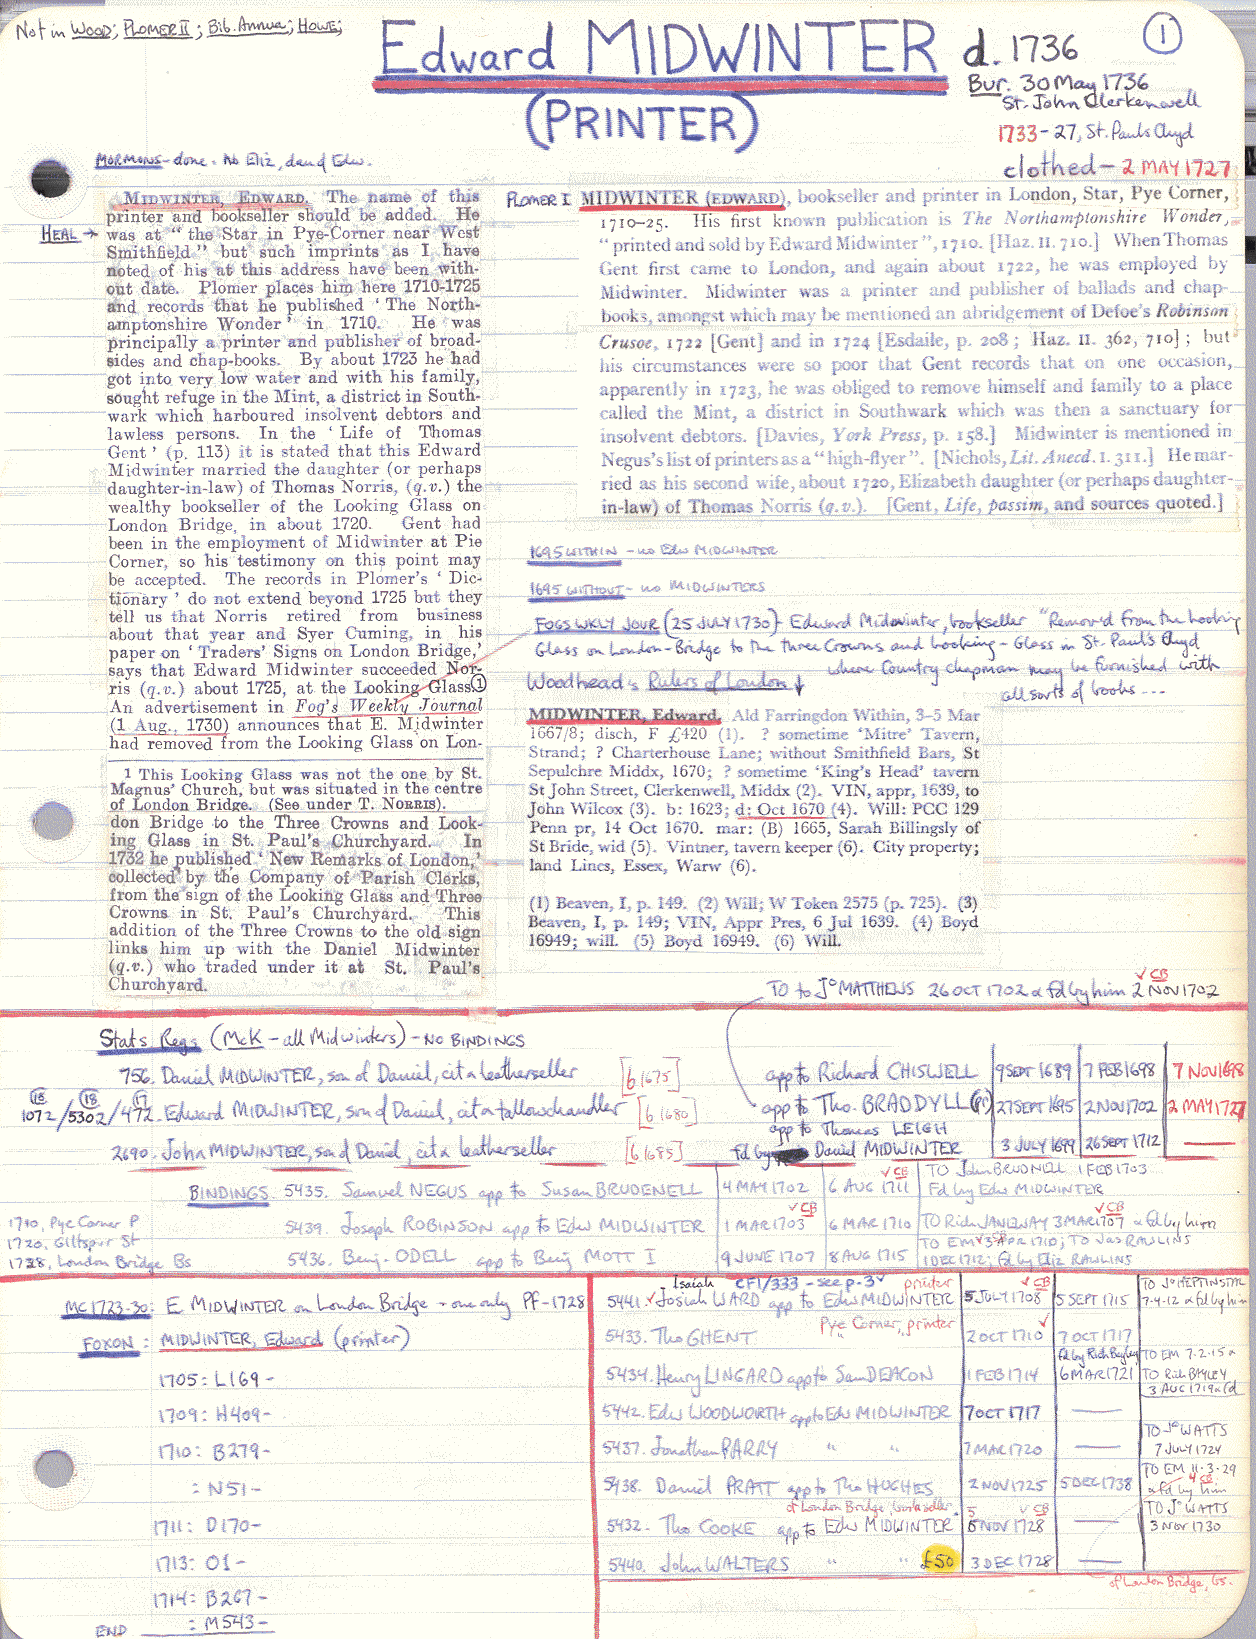 Not in WOOD; PLOMER II; Bib. Annua; HOWE;
Edward MIDWINTER d. 1736
1
(PRINTER)
Bur. 30 May 1736
St. John Clerkenwell
1733-27, St. Pauls Chyd
clothed - 2 MAY 1727
MORMONS - done. No Eliz, dau of Edw.
HEAL →
MIDWINTER, EDWARD. The name of this
printer and bookseller should be added. He
was at " the Star in Pye-Corner near West
Smithfield " but such imprints as I have
noted of his at this address have been with-
out date. Plomer places him here 1710-1725
and records that he published ' The North-
amptonshire Wonder ' in 1710. He was
principally a printer and publisher of broad-
sides and chap-books. By about 1723 he had
got into very low water and with his family,
sought refuge in the Mint, a district in South-
wark which harboured insolvent debtors and
lawless persons. In the ' Life of Thomas
Gent ' (p. 113) it is stated that this Edward
Midwinter married the daughter (or perhaps
daughter-in-law) of Thomas Norris, (q.v.) the
wealthy bookseller of the Looking Glass on
London Bridge, in about 1720. Gent had
been in the employment of Midwinter at Pie
Corner, so his testimony on this point may
be accepted. The records in Plomer's ' Dic-
tionary ' do not extend beyond 1725 but they
tell us that Norris retired from business
about that year and Syer Cuming, in his
paper on ' Traders' Signs on London Bridge,'
says that Edward Midwinter succeeded Nor-
ris (q.v.) about 1725, at the Looking Glass.1
An advertisement in Fog's Weekly Journal
(1 Aug., 1730) announces that E. Midwinter
had removed from the Looking Glass on Lon-
1 This Looking Glass was not the one by St.
Magnus' Church, but was situated in the centre
of London Bridge. (See under T. NORRIS).
don Bridge to the Three Crowns and Look-
ing Glass in St. Paul's Churchyard. In
1732 he published ' New Remarks of London,'
collected by the Company of Parish Clerks,
from the sign of the Looking Glass and Three
Crowns in St. Paul's Churchyard. This
addition of the Three Crowns to the old sign
links him up with the Daniel Midwinter
(q.v.) who traded under it at St. Paul's
Churchyard.
PLOMER I MIDWINTER (EDWARD), bookseller and printer in London, Star, Pye Corner,
1710-25. His first known publication is The Northamptonshire Wonder,
"printed and sold by Edward Midwinter", 1710. [Haz. II. 710.] When Thomas
Gent first came to London, and again about 1722, he was employed by
Midwinter. Midwinter was a printer and publisher of ballads and chap-
books, amongst which may be mentioned an abridgement of Defoe's Robinson
Crusoe, 1722 [Gent] and in 1724 [Esdaile, p. 208 ; Haz. II. 362, 710] ; but
his circumstances were so poor that Gent records that on one occasion,
apparently in 1723, he was obliged to remove himself and family to a place
called the Mint, a district in Southwark which was then a sanctuary for
insolvent debtors. [Davies, York Press, p. 158.] Midwinter is mentioned in
Negus's list of printers as a "high-flyer". [Nichols, Lit. Anecd. I. 311.] He mar-
ried as his second wife, about 1720, Elizabeth daughter (or perhaps daughter-
in-law) of Thomas Norris (q.v.). [Gent, Life, passim, and sources quoted.]
1695 WITHIN - no Edw MIDWINTER
1695 WITHOUT - no MIDWINTERS
FOGS WKLY JOUR (25 JULY 1730) - Edward Midwinter, bookseller "Remov'd from the Looking
Glass on London-Bridge to the Three Crowns and Looking-Glass in St. Paul's Chyd
where Country chapman may be furnished with
all sorts of books ...
Woodheads Rulers of London ↓
MIDWINTER, Edward, Ald Farringdon Within, 3-5 Mar
1667/8; disch, F £420 (1). ? sometime 'Mitre' Tavern,
Strand; ? Charterhouse Lane; without Smithfield Bars, St
Sepulchre Middx, 1670; ? sometime 'King's Head' tavern
St John Street, Clerkenwell, Middx (2). VIN, appr, 1639, to
John Wilcox (3). b: 1623; d: Oct 1670 (4). Will: PCC 129
Penn pr, 14 Oct 1670. mar: (B) 1665, Sarah Billingsly of
St Bride, wid (5). Vintner, tavern keeper (6). City property;
land Lincs, Essex, Warw (6).
(1) Beaven, I, p. 149. (2) Will; W Token 2575 (p. 725). (3)
Beaven, I, p. 149; VIN, Appr Pres, 6 Jul 1639. (4) Boyd
16949; will. (5) Boyd 16949. (6) Will.
✓ CB
TO to Jo MATTHEWS 26 OCT 1702 & fd by him 2 NOV 1702
Stats Regs (McK - all Midwinters) - NO BINDINGS
756. Daniel MIDWINTER, son of Daniel, cit & leatherseller [b 1675] app to Richard CHISWELL 9 SEPT 1689 7 FEB 1698 7 NOV 1698
18 18 17
1072/5302/472. Edward MIDWINTER, son of Daniel, cit & tallowchandler [b 1680] app to Tho. BRADDYLL (pr) 27 SEPT 1695 2 NOV 1702 2 MAY 1727
app to Thomas LEIGH
2690. John MIDWINTER, son of Daniel, cit & leatherseller [b 1685] fd by Daniel MIDWINTER 3 JULY 1699 26 SEPT 1712 —
BINDINGS 5435. Samuel NEGUS app to Susan BRUDENELL 4 MAY 1702 ✓ CB 6 AUG 1711 TO John BRUDNELL 1 FEB 1703
Fd by Edw MIDWINTER
1710, Pye Corner P
1720, Giltspur St
1728, London Bridge Bs
5439. Joseph ROBINSON app to Edw MIDWINTER ✓ CB 1 MAR 1703 6 MAR 1710 TO Rich JANEWAY 3 MAR 1707 ✓ CB & fd by him
5436. Benj. ODELL app to Benj MOTT I 9 JUNE 1707 8 AUG 1715 TO EM 3 APR 1710; TO Jas RAWLINS
1 DEC 1712; fd by Eliz RAWLINS
MC 1723-30: E MIDWINTER on London Bridge - one only PF-1728
FOXON: MIDWINTER, Edward (printer)
1705: L169-
1709: H409-
1710: B279-
: N51-
1711: D170-
1713: O1-
1714: B267-
: M543-
END
Isaiah CF1/333 - see p.3 printer ✓ CB
5441. Josiah WARD app to Edw MIDWINTER 5 JULY 1708 5 SEPT 1715 TO Jo HEPTINSTAL
7-4-12 & fd by him
Pye Corner, printer
5433. Tho GHENT " 2 OCT 1710 7 OCT 1717
fd by Rich Bayley
5434. Henry LINGARD app to Sam DEACON 1 FEB 1714 6 MAR 1721 TO EM 7-2-15 &
TO Rich BAYLEY
3 AUG 1719 & fd
5442. Edw WOODWORTH app to Edw MIDWINTER 7 OCT 1717 —
5437. Jonathan PARRY " " 7 MAR 1720 — TO Jo WATTS
7 JULY 1724
5438. Daniel PRATT app to Tho HUGHES 2 NOV 1725 5 DEC 1738 TO EM 11-3-29
& fd by him
of London Bridge, bookseller ✓ CB
5432. Tho COOKE app to Edw MIDWINTER 5 NOV 1728 — TO Jo WATTS
3 NOV 1730
5440. John WALTERS " " £50 3 DEC 1728 —
of London Bridge, Bs.